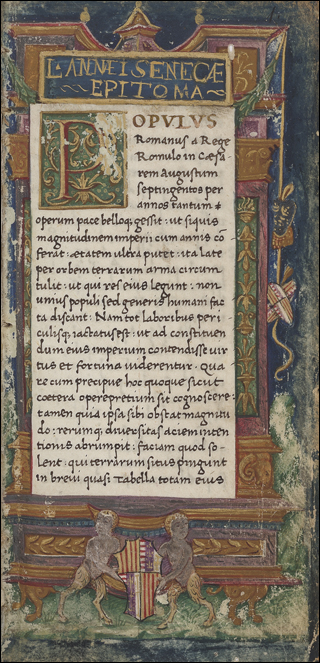 L·ANNEI SENECÆ
EPITOMA
POPULUS
Romanus a Rege
Romulo in Cæsa
rem Augustum
septingentos per
annos tantum
operum pace belloq; gessit : ut siquis
magnitudinem imperii cum annis cõ
ferat : ætatem ultra putet : ita late
per orbem terrarum arma circum
tulit : ut qui res eius legunt : non
unius populi sed generis humani fac
ta discant : Nam tot laboribus peri
culisq; iactatus est : ut ad constituen
dum eius imperium contendisse uir
tus et fortuna uiderentur · Qua
re cum precipue hoc quoque sicut
coetera operepretium sit cognoscere :
tamen quia ipsa sibi obstat magnitu
do : rerumq; diuersitas aciem inten
tionis abrumpit : faciam quod so-
lent : qui terrarum situs pingunt
in breui quasi Tabella totam eius